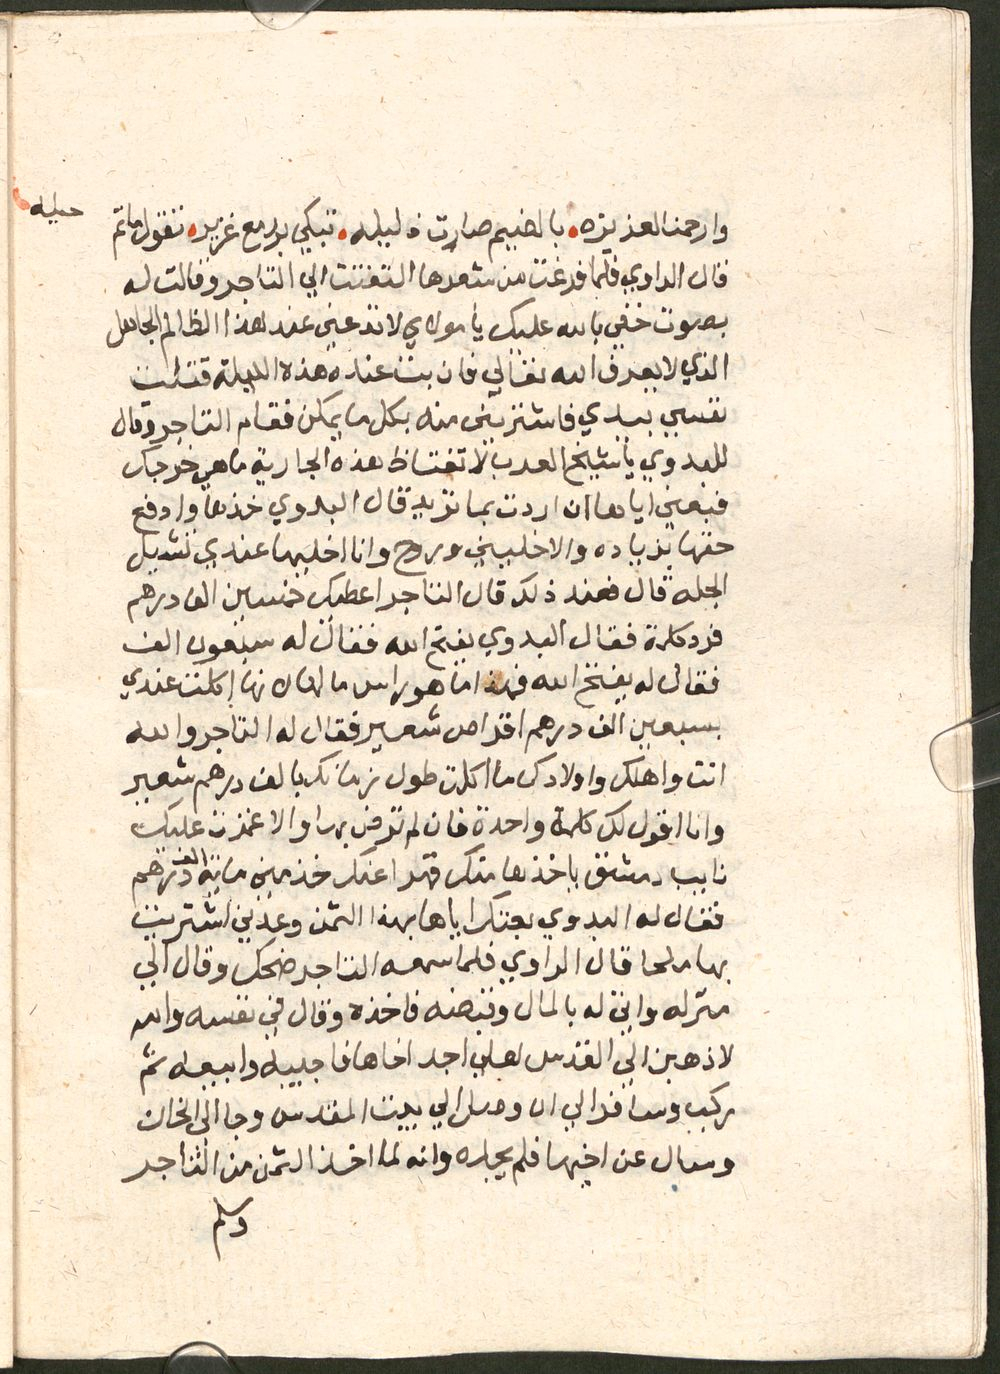 وارحمنا لعزيزه بالضيم صارت ذليله تبكي بدمع غزير تقول ماتم حيله
قال الراوي فلما فرغت من شعرها التفتت الي التاجر وقالت له
بصوت خفي بالله عليك يا مولاي لا تدعني عند هذا الظالم الجاهل
الذي لا يعرف الله تعالي فان بت عنده هذه الليلة قتلت
نفسي بيدي فاشتريني منه بكل ما يمكن فقام التاجر وقال
للبدوي يا شيخ العرب لا تغتاظ هذه الجارية ما هي خرجك
فبعني اياها ان اردت بما تريد قال البدوي خذها وادفع
حقها بزياده والا خليني وروح وانا اخليها عندي تشيل
الجله قال فعند ذلك قال التاجر اعطيك خمسين الف درهم
فرد كلمة فقال البدوي يفتح الله فقال له سبعون الف
فقال له يفتح الله فهذا ما هو راس مالها لانها اكلت عندي
بسبعين الف درهم اقراص شعير فقال له التاجر والله
انت واهلك واولادك ما اكلت طول زمانك بالف درهم شعير
وانا اقول لك كلمة واحدة فان لم ترض بها والا غمزت عليك
نايب دمشق ياخذها منك قهرا عنك خذ مني ماية الف درهم
فقال له البدوي بعتك اياها بهذا الثمن وعدني اشتريت
بها ملحا قال الراوي فلما سمعه التاجر ضحك وقال الي
منزله واتي له بالمال وقبضه فاخذه وقال في نفسه والله
لاذهبن الي القدس لعلي اجد اخاها فاجيبه وابيعه ثم
ركب وسافر الي ان وصل الي بيت المقدس وجا الي الخان
وسال عن اخيها فلم يجده وانه لما اخذ الثمن من التاجر
وسلم